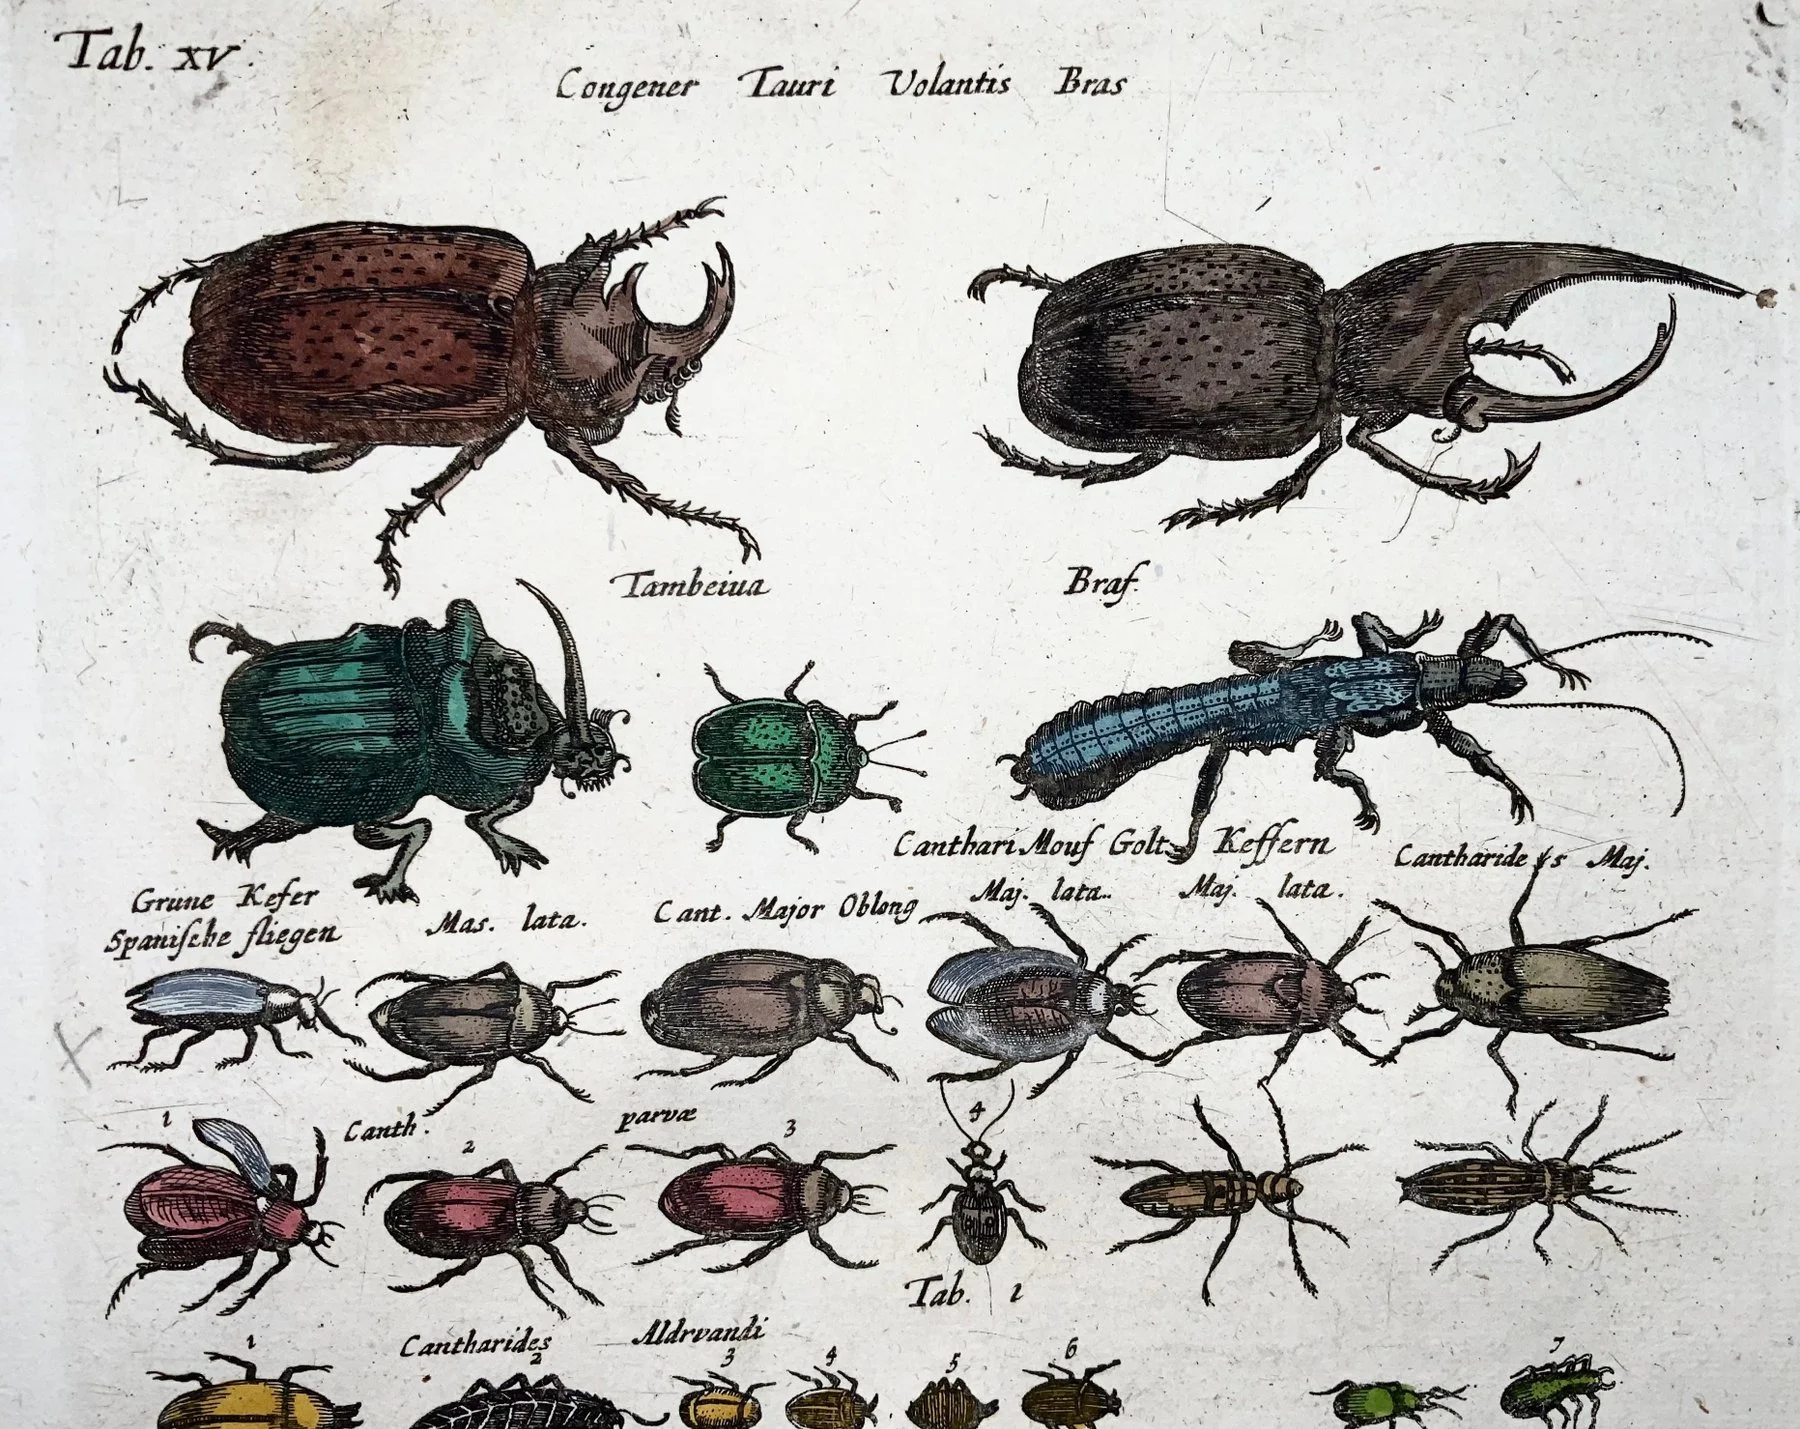 Tab. XV.
Congener Tauri Volantis Bras
Tambeiua
Bras.
Canthari Mous Golt Keffern
Cantharides Maj.
Grune Kefer
Spanische fliegen
Mas. lata.
Cant. Major Oblong
Maj. lata..
Maj. lata.
1
Canth.
2
parvæ
3
4
Tab. 1
1
Cantharides
2
Aldrvandi
3
4
5
6
7